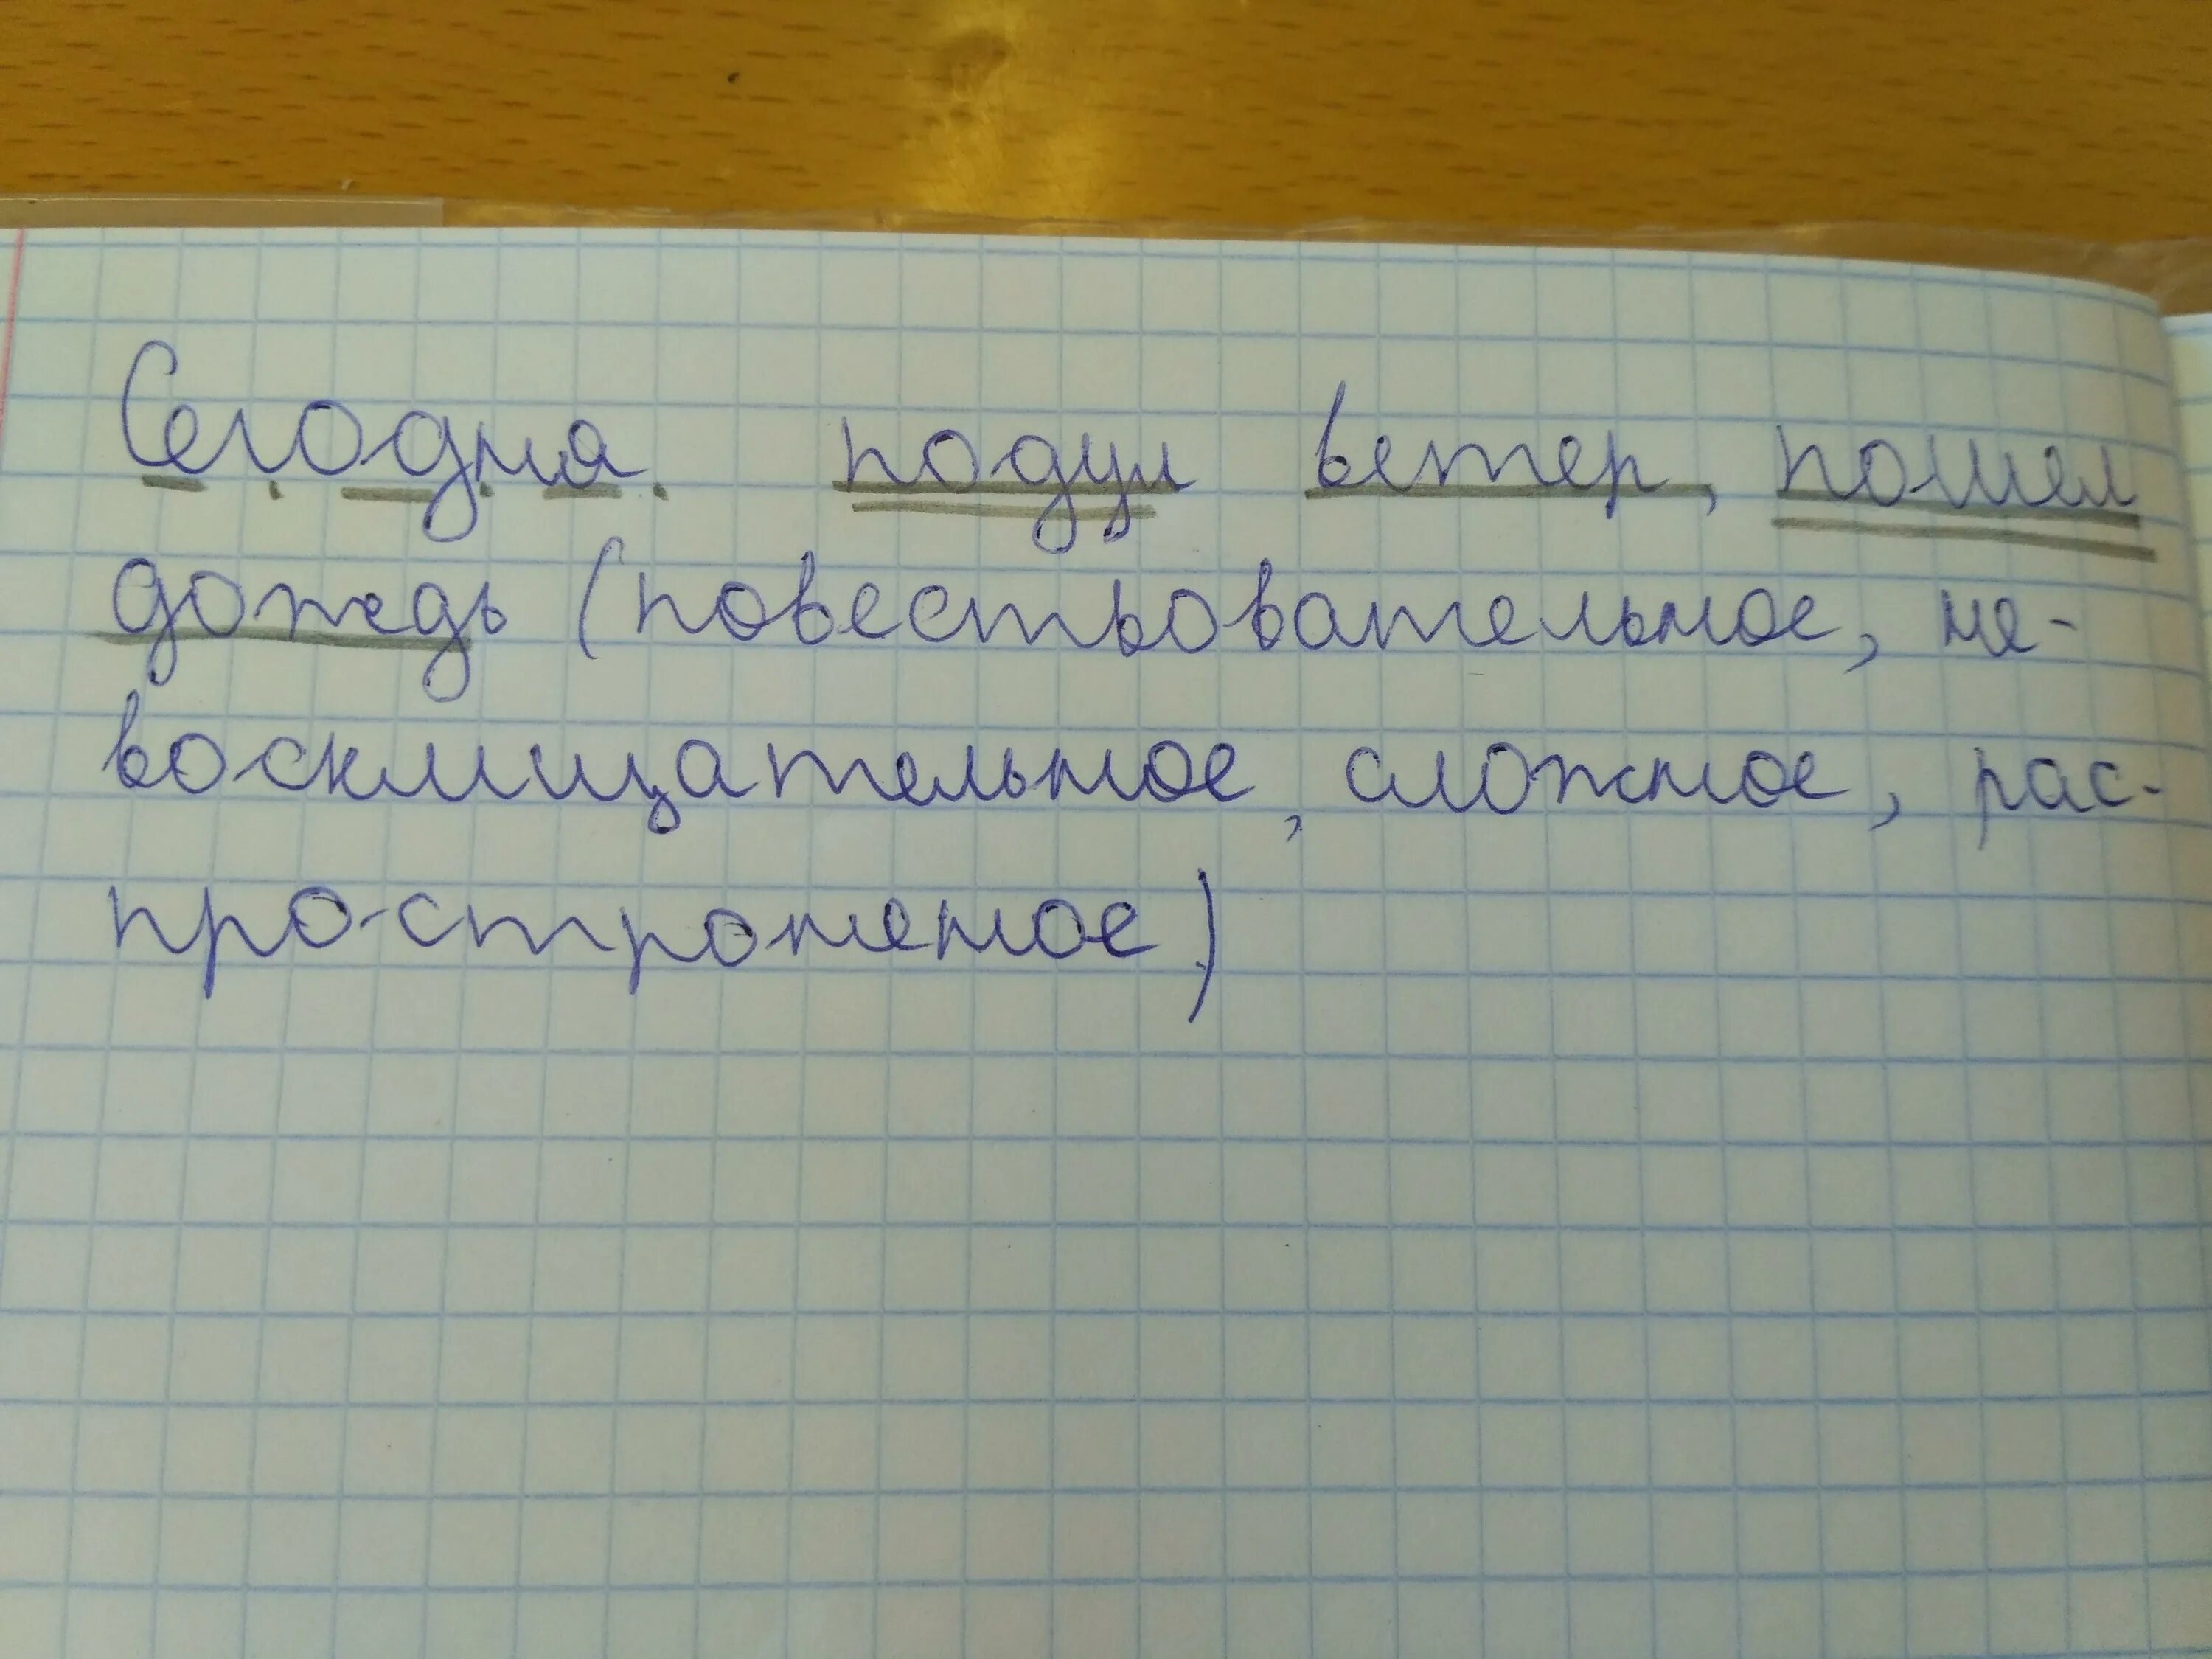 Сегодня подул ветер, пошел
дождь (повестьовательное, не-
восклицательное, сложное, рас-
простроненое)